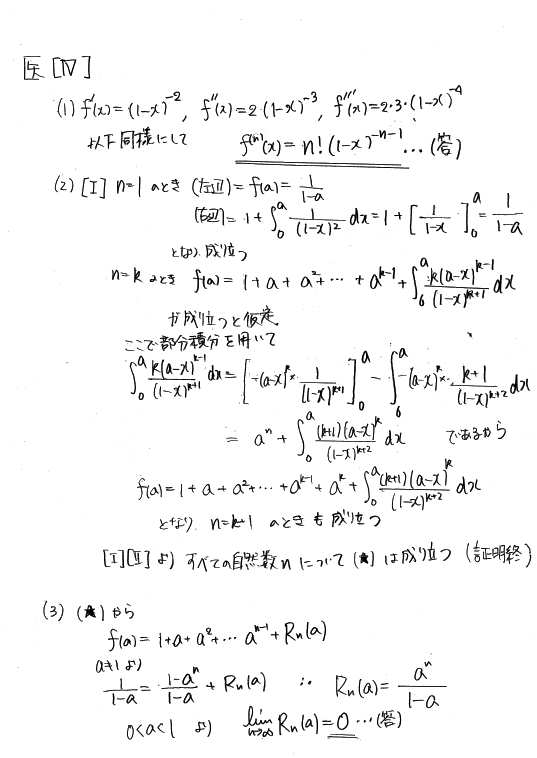 医 [Ⅳ]
(1) f'(x)=(1-x)^{-2}, f''(x)=2・(1-x)^{-3}, f'''(x)=2・3・(1-x)^{-4}
以下同様にして f^{(n)}(x)=n!(1-x)^{-n-1} …(答)
(2) [I] n=1 のとき (左辺)=f(a)=\frac{1}{1-a}
(右辺)=1+∫_0^a \frac{1}{(1-x)^2}dx=1+[\frac{1}{1-x}]_0^a=\frac{1}{1-a}
となり成立つ
n=k のとき f(a)=1+a+a^2+…+a^{k-1}+∫_0^a \frac{k(a-x)^{k-1}}{(1-x)^{k+1}}dx
が成り立つと仮定
ここで部分積分を用いて
∫_0^a \frac{k(a-x)^{k-1}}{(1-x)^{k+1}}dx=[-(a-x)^k×\frac{1}{(1-x)^{k+1}}]_0^a-∫_0^a -(a-x)^k×\frac{k+1}{(1-x)^{k+2}}dx
=a^n+∫_0^a \frac{(k+1)(a-x)^k}{(1-x)^{k+2}}dx であるから
f(a)=1+a+a^2+…+a^{k-1}+a^k+∫_0^a \frac{(k+1)(a-x)^k}{(1-x)^{k+2}}dx
となり n=k+1 のときも成り立つ
[I][Ⅱ]より すべての自然数nについて (★)は成り立つ (証明終)
(3) (★)から
f(a)=1+a+a^2+…a^{n-1}+R_n(a)
a≠1より
\frac{1}{1-a}=\frac{1-a^n}{1-a}+R_n(a) ∴ R_n(a)=\frac{a^n}{1-a}
0<a<1 より \lim_{n→∞}R_n(a)=0 …(答)